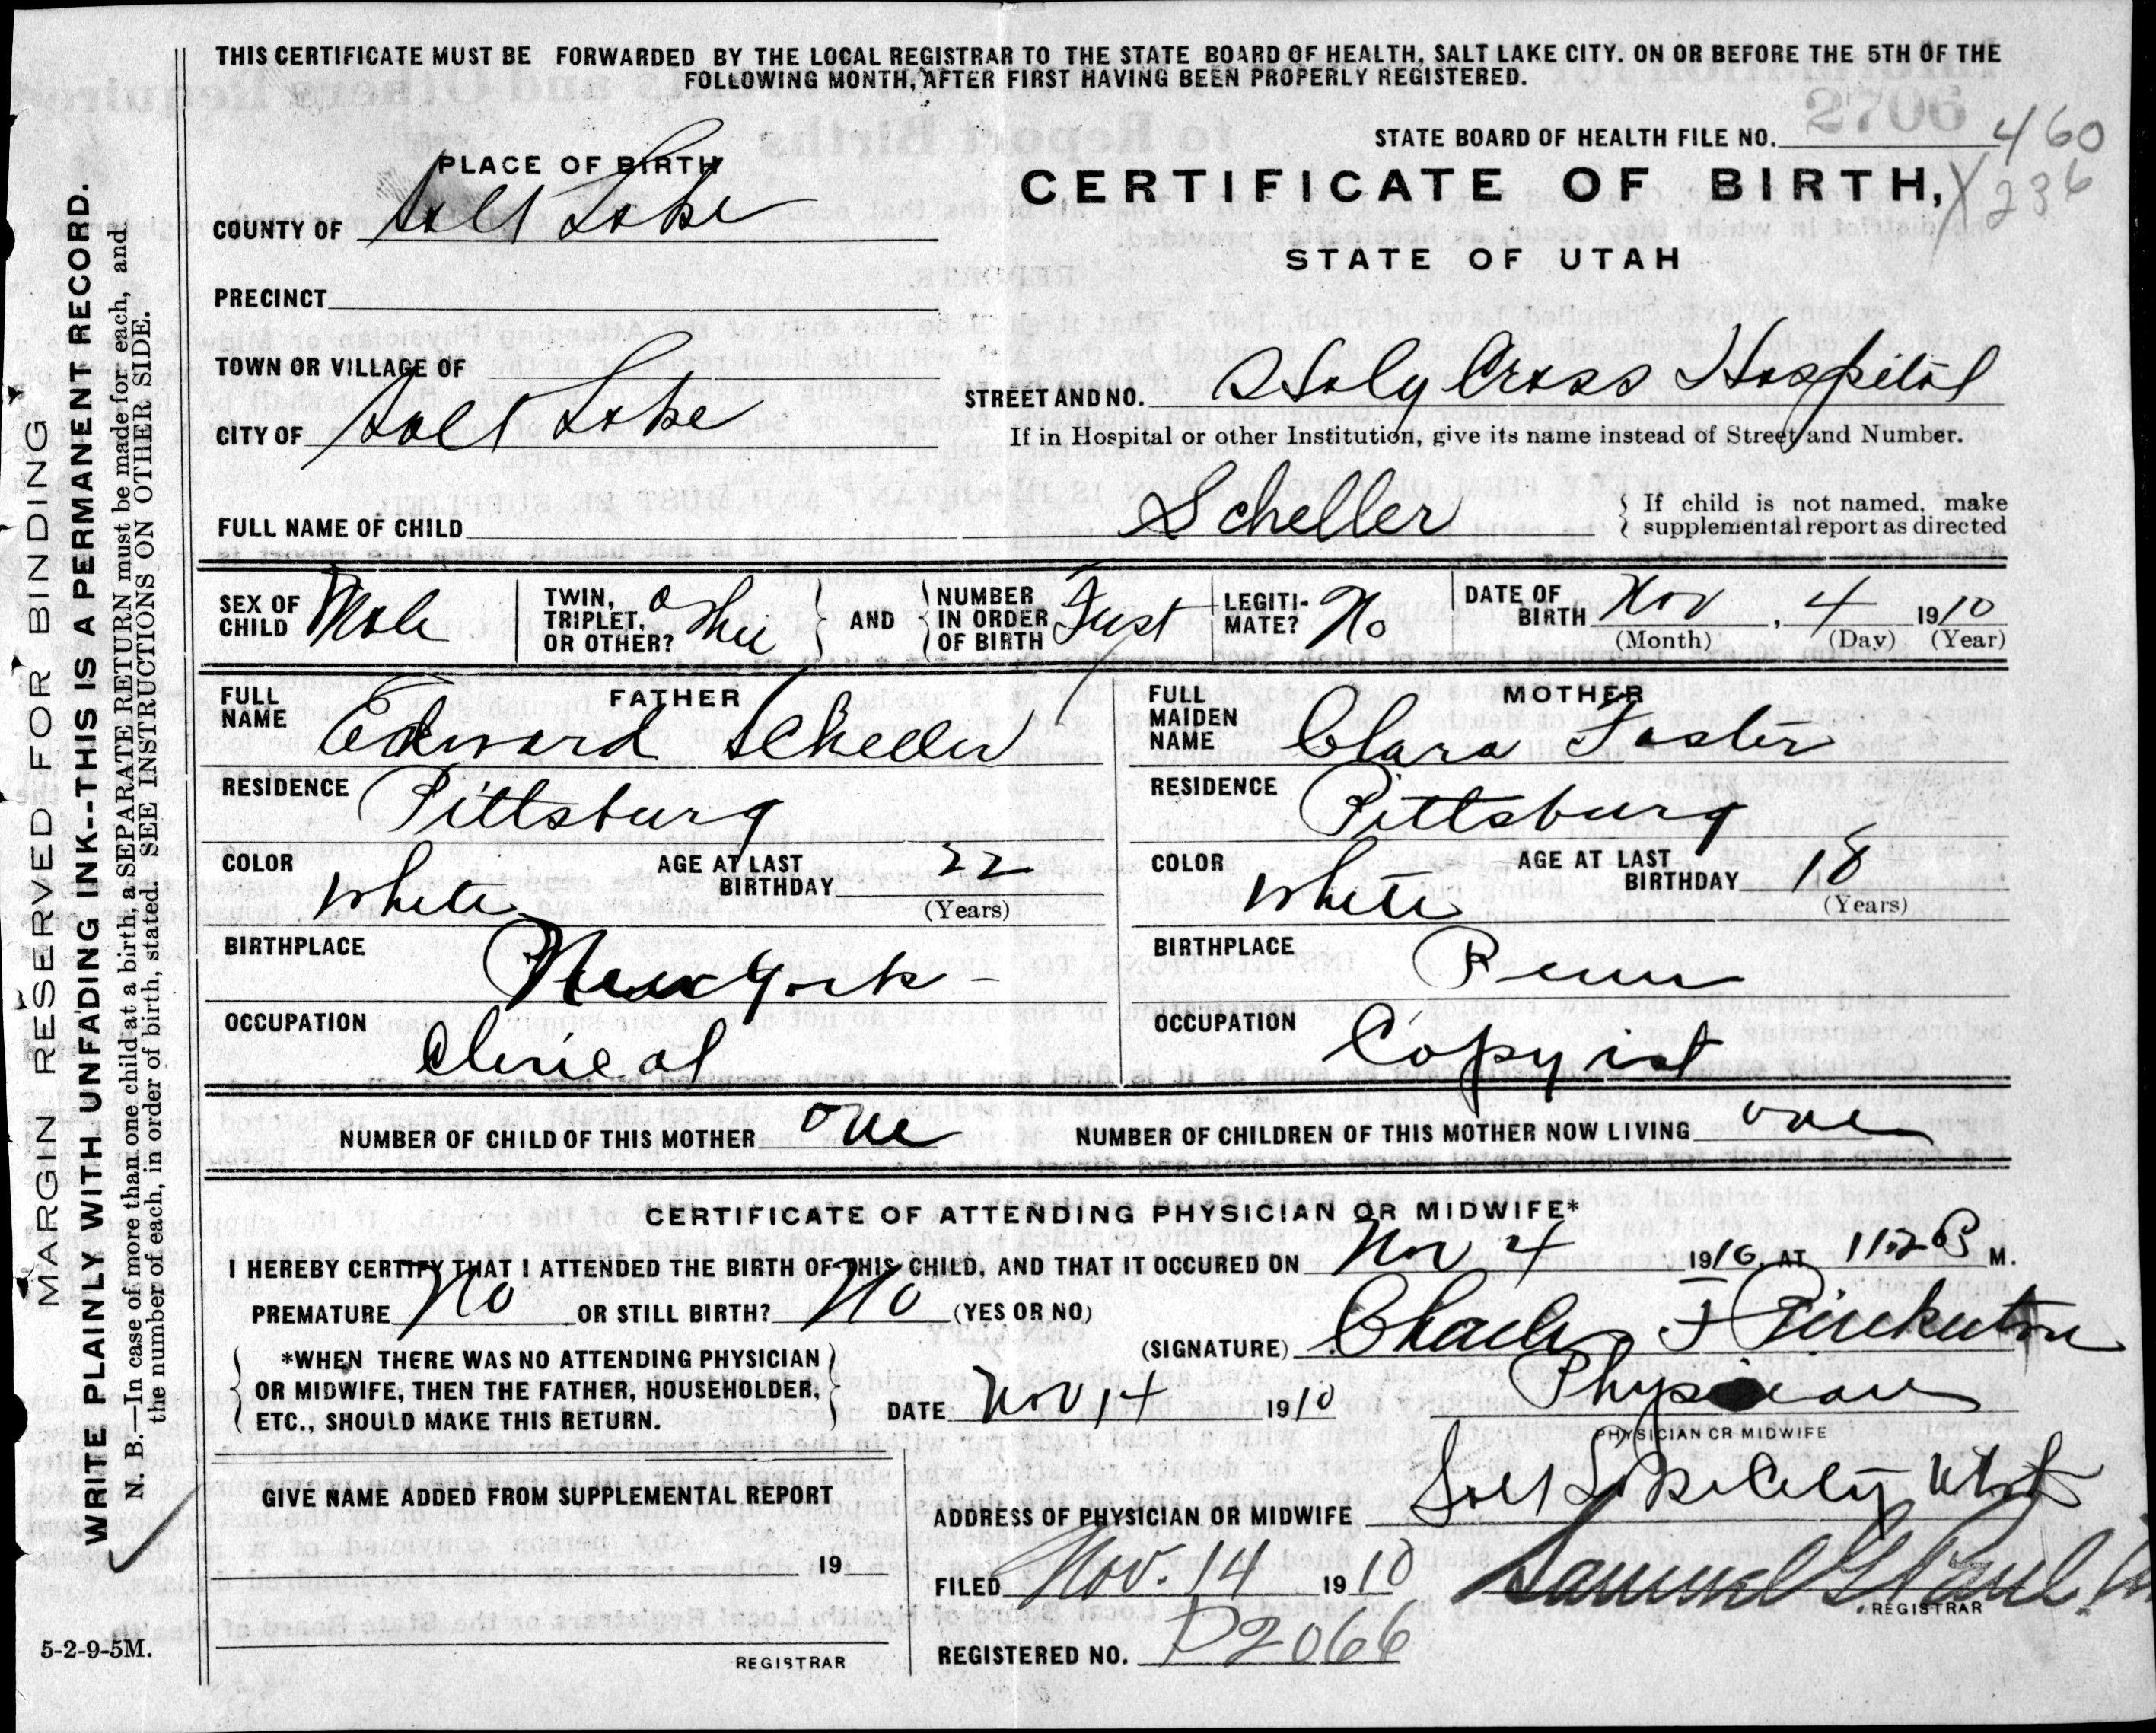 THIS CERTIFICATE MUST BE FORWARDED BY THE LOCAL REGISTRAR TO THE STATE BOARD OF HEALTH, SALT LAKE CITY. ON OR BEFORE THE 5TH OF THE
FOLLOWING MONTH, AFTER FIRST HAVING BEEN PROPERLY REGISTERED.
STATE BOARD OF HEALTH FILE NO. 2706 460
236
PLACE OF BIRTH
CERTIFICATE OF BIRTH,
STATE OF UTAH
COUNTY OF Salt Lake
PRECINCT
TOWN OR VILLAGE OF
CITY OF Salt Lake
STREET AND NO. Holy Cross Hospital
If in Hospital or other Institution, give its name instead of Street and Number.
FULL NAME OF CHILD Scheller
If child is not named, make
supplemental report as directed
SEX OF CHILD Male
TWIN, TRIPLET, OR OTHER?
AND
NUMBER IN ORDER OF BIRTH First
LEGITIMATE? No
DATE OF BIRTH Nov, 4 1910
(Month) (Day) (Year)
FATHER
FULL NAME Edward Scheller
RESIDENCE Pittsburg
COLOR White
AGE AT LAST BIRTHDAY 22
(Years)
BIRTHPLACE New York -
OCCUPATION Clerical
MOTHER
FULL MAIDEN NAME Clara Foster
RESIDENCE Pittsburg
COLOR White
AGE AT LAST BIRTHDAY 18
(Years)
BIRTHPLACE Penn
OCCUPATION Copyist
NUMBER OF CHILD OF THIS MOTHER one
NUMBER OF CHILDREN OF THIS MOTHER NOW LIVING one
CERTIFICATE OF ATTENDING PHYSICIAN OR MIDWIFE*
I HEREBY CERTIFY THAT I ATTENDED THE BIRTH OF THIS CHILD, AND THAT IT OCCURED ON Nov 4 1910, AT P M.
PREMATURE No OR STILL BIRTH? No (YES OR NO)
(SIGNATURE) Charles F Pinkerton
*WHEN THERE WAS NO ATTENDING PHYSICIAN
OR MIDWIFE, THEN THE FATHER, HOUSEHOLDER,
ETC., SHOULD MAKE THIS RETURN.
DATE Nov 14 1910
Physician
PHYSICIAN OR MIDWIFE
GIVE NAME ADDED FROM SUPPLEMENTAL REPORT
19
REGISTRAR
ADDRESS OF PHYSICIAN OR MIDWIFE Salt Lake City Utah
FILED Nov. 14 1910 Samuel G. Paul
REGISTRAR
REGISTERED NO. P2066
5-2-9-5M.
MARGIN RESERVED FOR BINDING
WRITE PLAINLY WITH UNFADING INK--THIS IS A PERMANENT RECORD.
N. B.—In case of more than one child at a birth, a SEPARATE RETURN must be made for each, and
the number of each, in order of birth, stated. SEE INSTRUCTIONS ON OTHER SIDE.